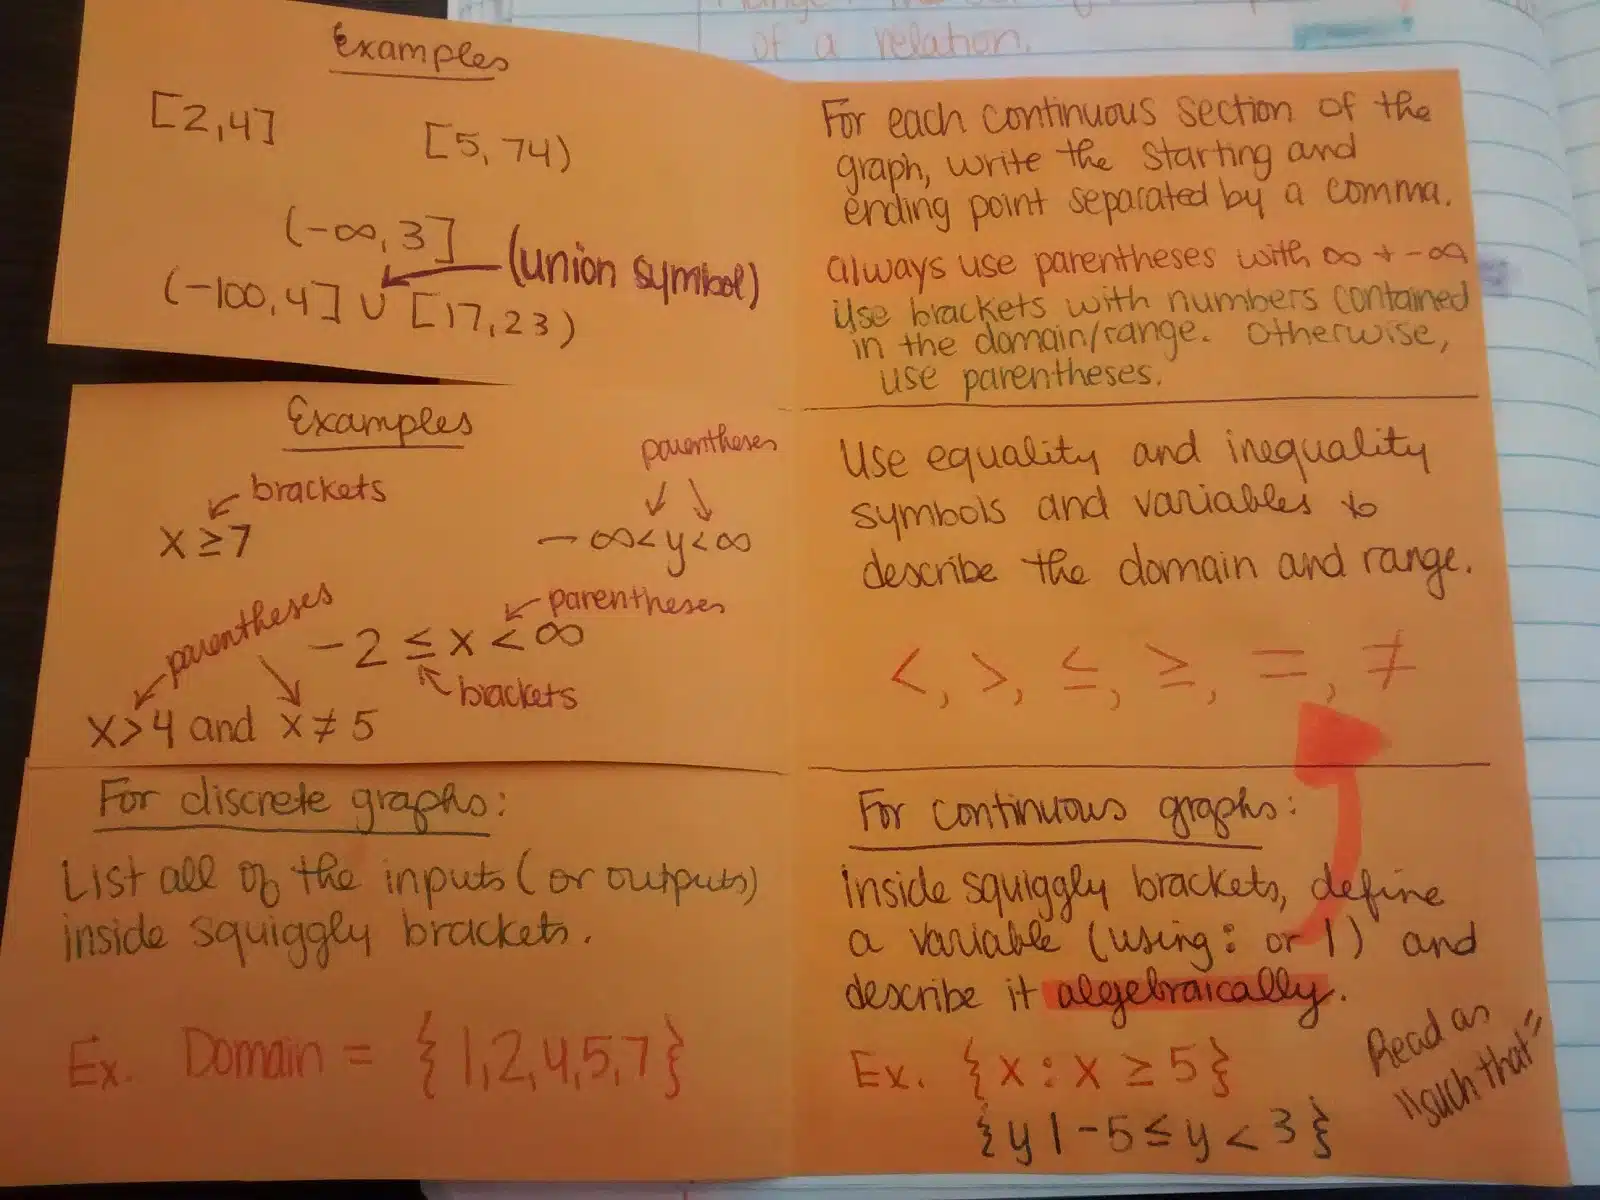 of a relation.
Examples
[2,4]
[5,74)
(-∞,3]
(union symbol)
(-100,4] ∪ [17,23)
For each continuous section of the
graph, write the starting and
ending point separated by a comma.
always use parentheses with ∞ + -∞
Use brackets with numbers contained
in the domain/range. Otherwise,
use parentheses.
Examples
brackets
x ≥ 7
parentheses
-∞ < y < ∞
parentheses
parentheses
-2 ≤ x < ∞
brackets
x > 4 and x ≠ 5
Use equality and inequality
symbols and variables to
describe the domain and range.
<, >, ≤, ≥, =, ≠
For discrete graphs:
List all of the inputs (or outputs)
inside squiggly brackets.
Ex. Domain = {1,2,4,5,7}
For continuous graphs:
inside squiggly brackets, define
a variable (using : or |) and
describe it algebraically.
Ex. {x : x ≥ 5}
{y | -5 ≤ y < 3}
Read as
"such that"